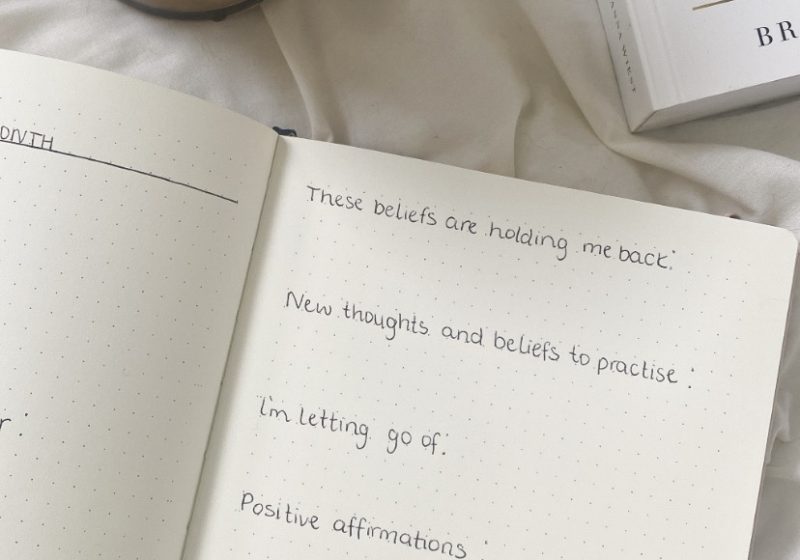 BR
These beliefs are holding me back:
New thoughts and beliefs to practise:
I'm letting go of:
Positive affirmations: